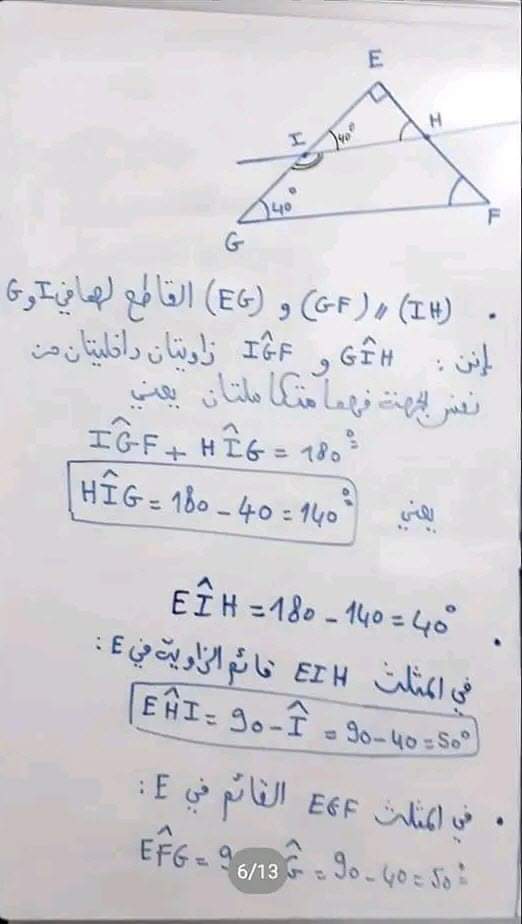 E
H
I
40°
40°
G
F
• (IH) // (GF) و (EG) القاطع لهما في I و G
إذن : GÎH و IĜF زاويتان داخليتان من
نفس الجهة فهما متكاملتان يعني
IĜF + HÎG = 180°
يعني HÎG = 180 - 40 = 140°
• EÎH = 180 - 140 = 40°
في المثلث EIH قائم الزاوية في E :
EĤI = 90 - Î = 90 - 40 = 50°
• في المثلث EGF القائم في E :
EF̂G = 9 Ĝ = 90 - 40 = 50°
6/13